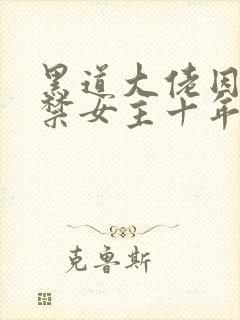 黑道大佬囚
禁女主十年
克鲁斯